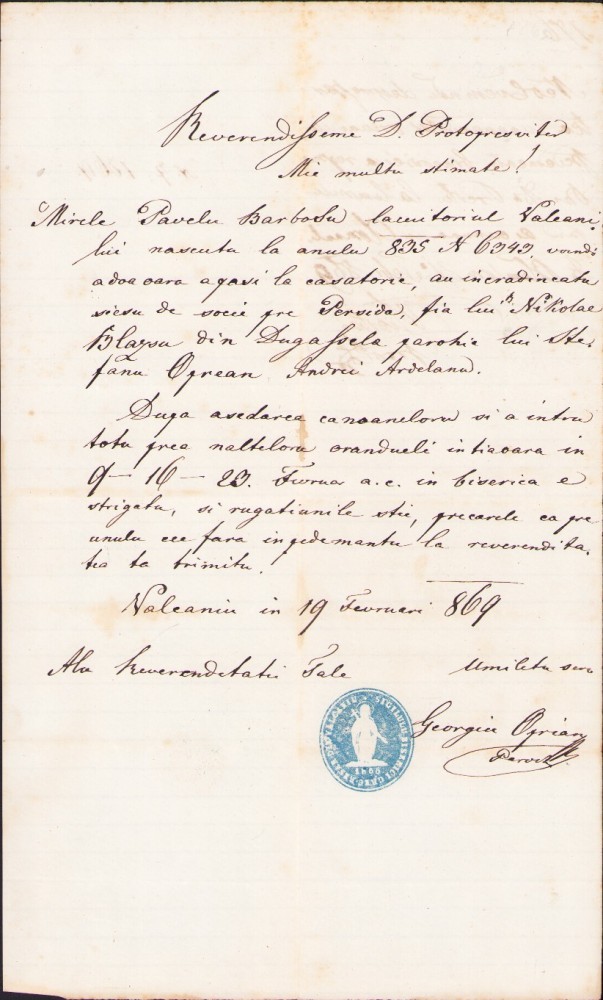 Reverendisseme D. Protopresviter
Mie multu stimate!
Mirele Pavelu Barbosu lacuitoriul Valcani
lui nascutu la anulu 835 N 6343, voindu
adoaoara apasi la casatorie, au incradincatu
siesu de socie pre Persida, fia lui Nikolae
Blazsu din Dugassele parohie lui Ste-
fanu Oprean Andrei Ardelanu.
Dupa asedarea canoaneloru si a intru
totu prea nalteloru oranduele intiaoara in
9 – 16 – 23. Fevruar a.c. in biserica e
strigatu, si rugatiunile stie, precarele ca pre
unulu ce fara inpedemantu la reverendita-
tea ta trimitu.
Valcaniu in 19 Fevruari 869
Ala Reverenditatii Tale Umilitu
Georgiu Oprian
Paroch
SIGILULU BISERICI
1866